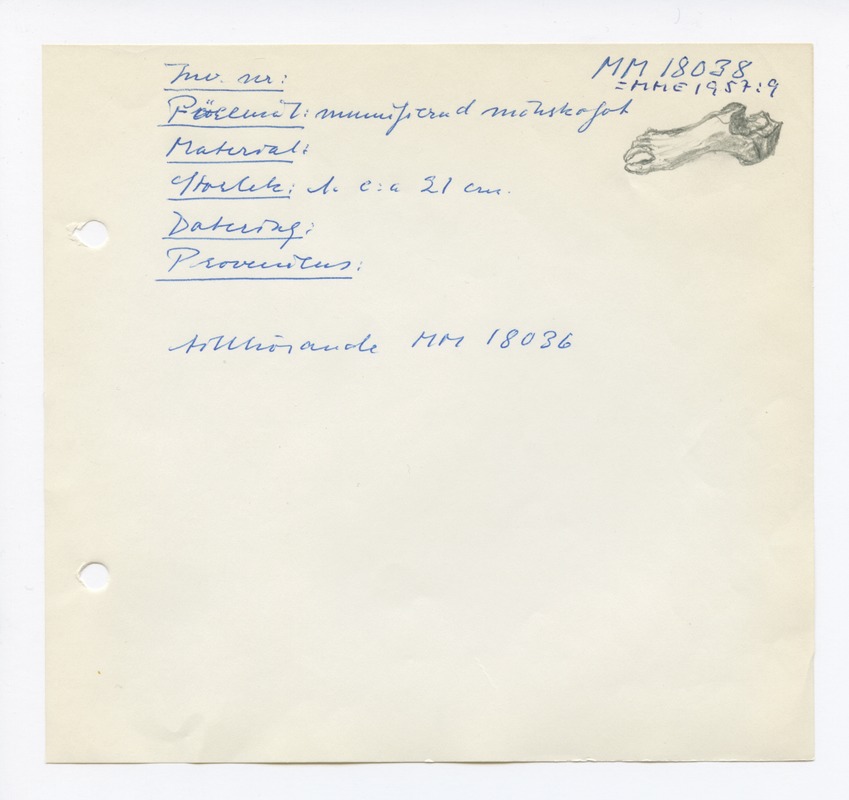 MM 18038
Inv. nr:
=MME 1957:9
Föremål: mumifierad mänskofot
Material:
Storlek: l. c:a 21 cm.
Datering:
Proveniens:
tillhörande MM 18036